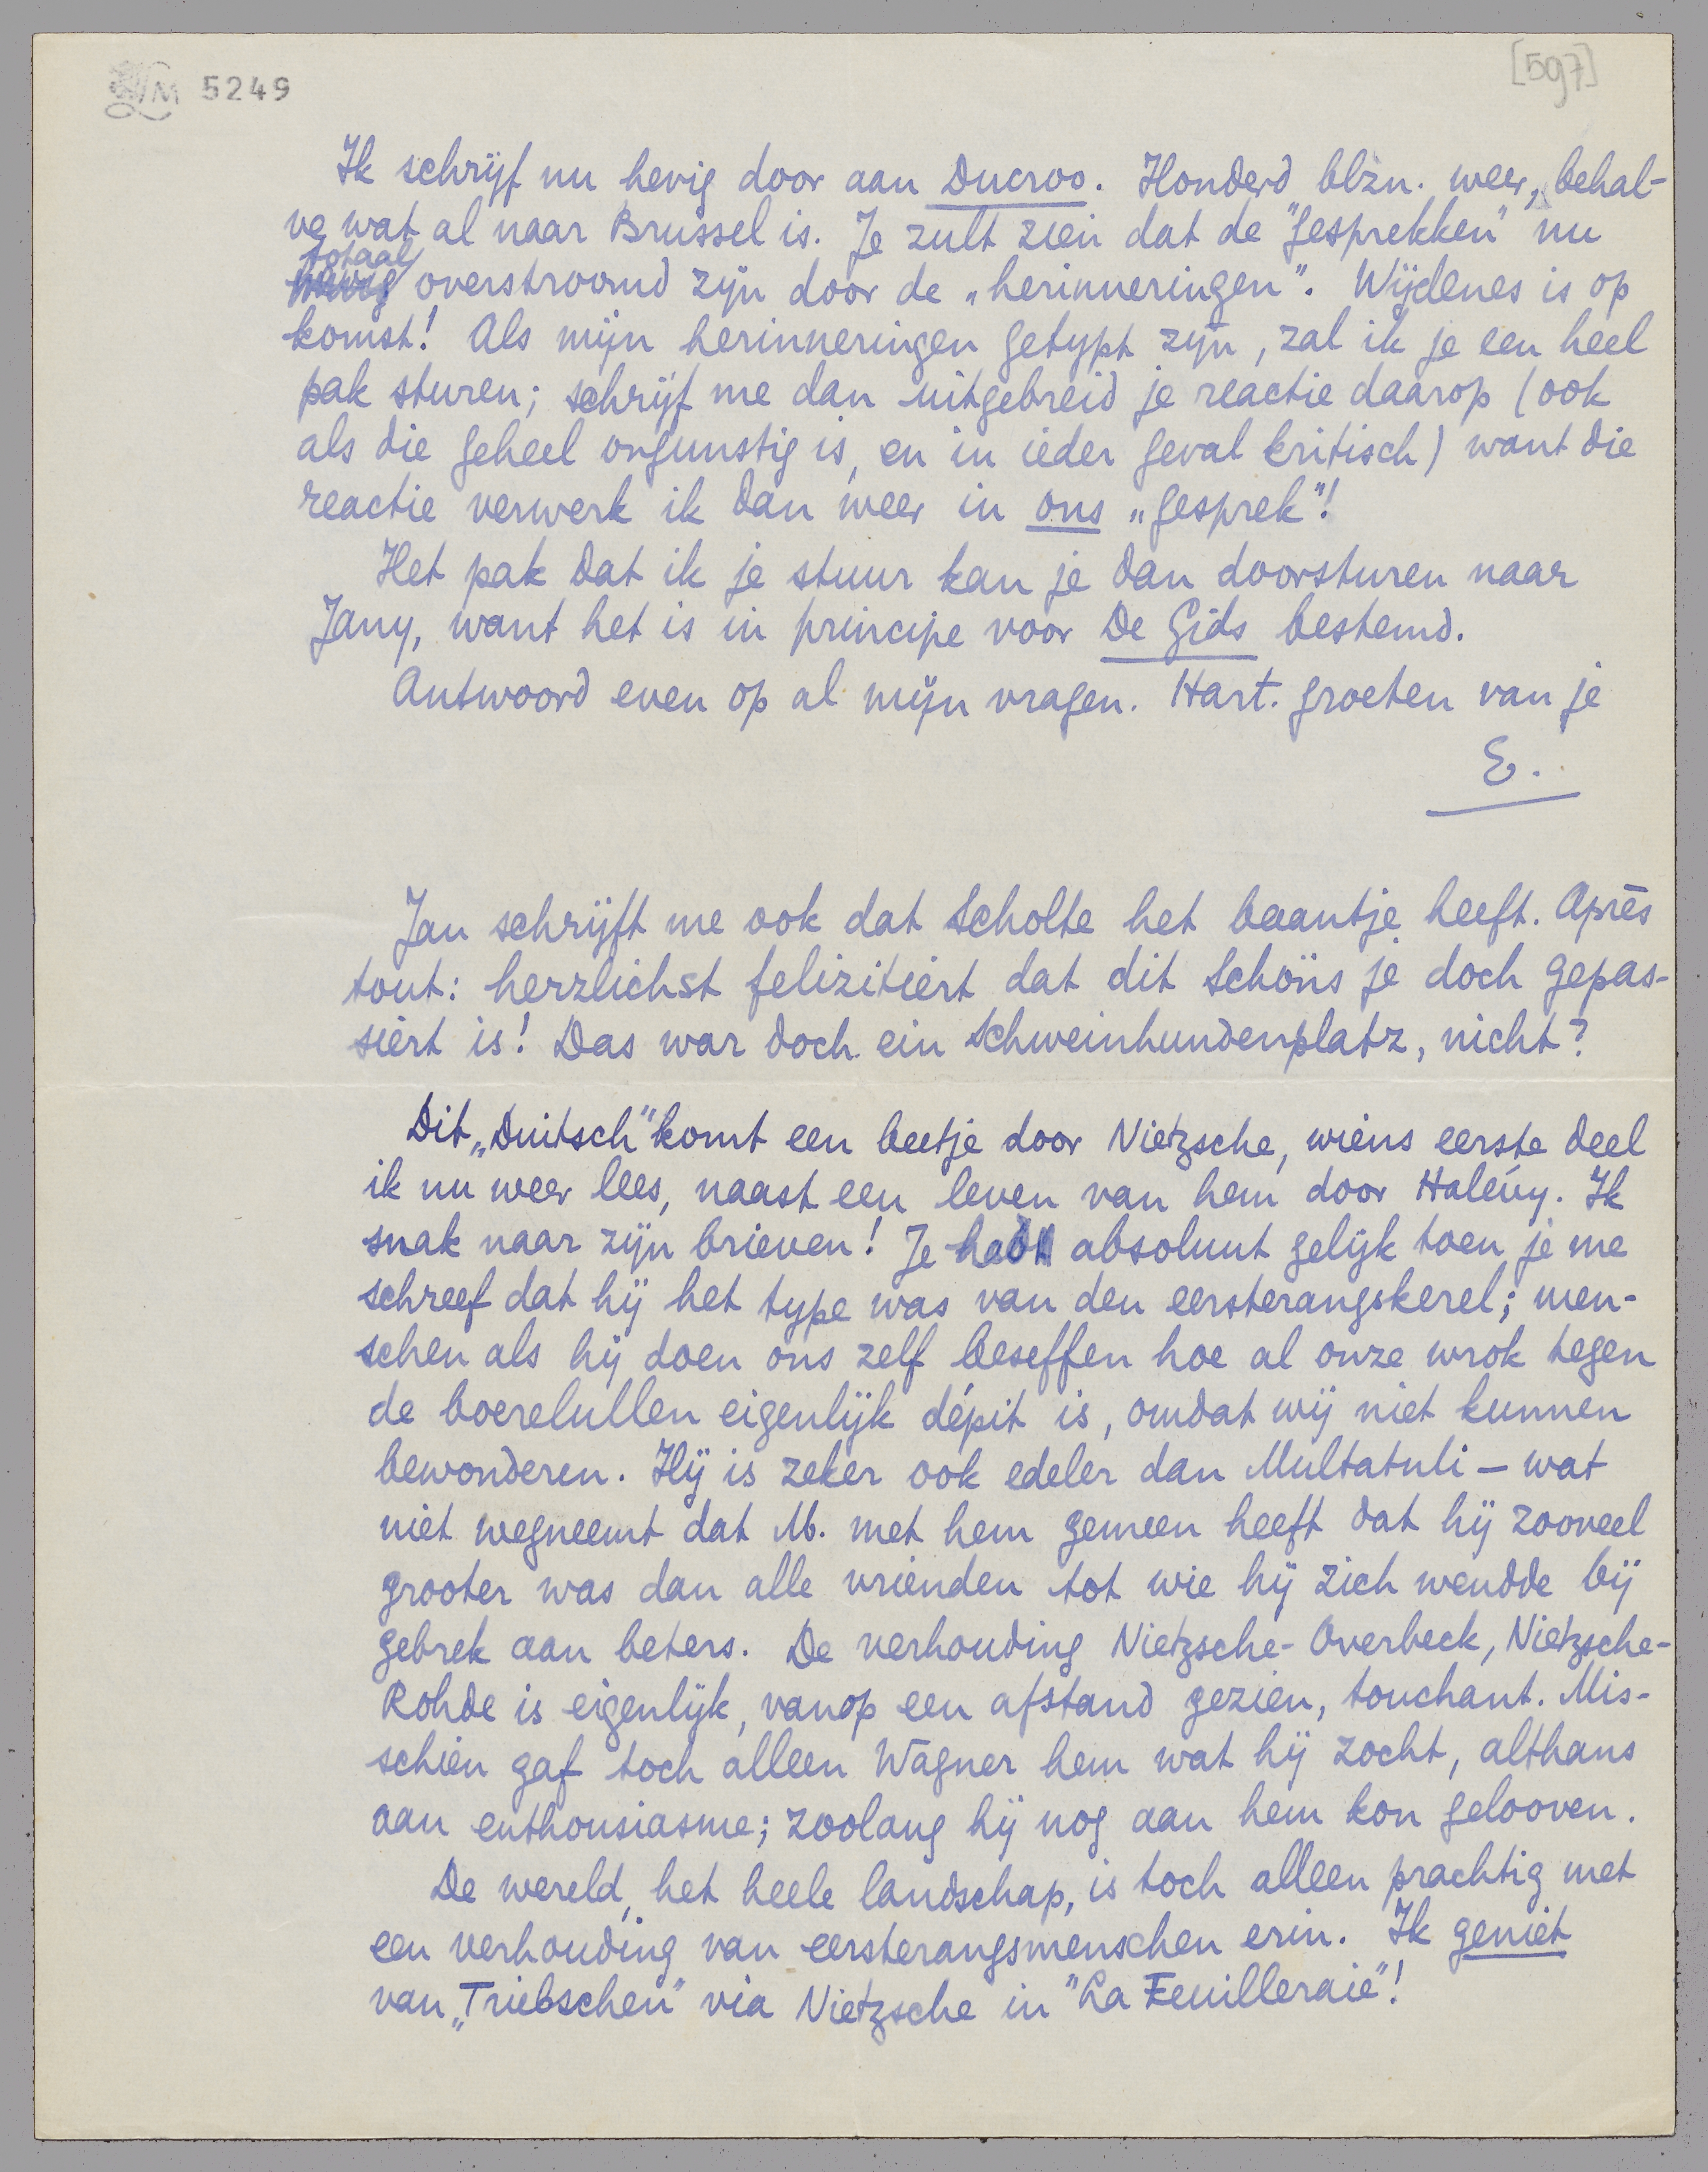 LM 5249
[597]
Ik schrijf nu hevig door aan Ducroo. Honderd blzn. weer, behal-
ve wat al naar Brussel is. Je zult zien dat de "gesprekken" nu
totaal
overstroomd zijn door de „herinneringen". Wijdenes is op
komst! Als mijn herinneringen getypt zijn, zal ik je een heel
pak sturen; schrijf me dan uitgebreid je reactie daarop (ook
als die geheel ongunstig is, en in ieder geval kritisch) want die
reactie verwerk ik dan weer in ons „gesprek"!
Het pak dat ik je stuur kan je dan doorsturen naar
Jany, want het is in principe voor De Gids bestemd.
Antwoord even op al mijn vragen. Hart. groeten van je
E.
Jan schrijft me ook dat Scholte het baantje heeft. Après
tout: herzlichst felizitiert dat dit Schöns je doch gepas-
siert is! Das war doch ein Schweinhundenplatz, nicht?
Dit „Duitsch" komt een beetje door Nietzsche, wiens eerste deel
ik nu weer lees, naast een leven van hem door Halévy. Ik
snak naar zijn brieven! Je hadt absoluut gelijk toen je me
schreef dat hij het type was van den eersterangskerel; men-
schen als hij doen ons zelf beseffen hoe al onze wrok tegen
de boerelullen eigenlijk dépit is, omdat wij niet kunnen
bewonderen. Hij is zeker ook edeler dan Multatuli – wat
niet wegneemt dat M. met hem gemeen heeft dat hij zooveel
grooter was dan alle vrienden tot wie hij zich wendde bij
gebrek aan beters. De verhouding Nietzsche-Overbeck, Nietzsche-
Rohde is eigenlijk, vanop een afstand gezien, touchant. Mis-
schien gaf toch alleen Wagner hem wat hij zocht, althans
aan enthousiasme; zoolang hij nog aan hem kon gelooven.
De wereld, het heele landschap, is toch alleen prachtig met
een verhouding van eersterangsmenschen erin. Ik geniet
van „Triebschen" via Nietzsche in "La Feuilleraie"!